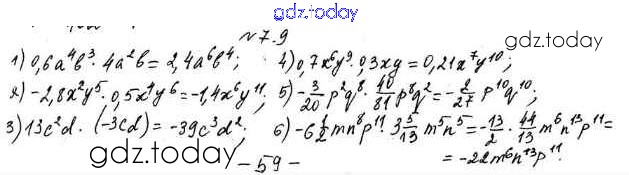 gdz.today
№7.9
1) 0,6a⁴b³ · 4a²b = 2,4a⁶b⁴; 4) 0,7x⁶y⁹ · 0,3xy = 0,21x⁷y¹⁰;
2) -2,8x²y⁵ · 0,5x⁴y⁶ = -1,4x⁶y¹¹; 5) -3/20 p²q⁸ · 40/81 p⁸q² = -2/27 p¹⁰q¹⁰;
3) 13c²d · (-3cd) = -39c³d²; 6) -6 1/2 mn⁸p¹¹ · 3 5/13 m⁵n⁵ = -13/2 · 44/13 m⁶n¹³p¹¹ =
= -22m⁶n¹³p¹¹.
- 59 -
gdz.today
gdz.today